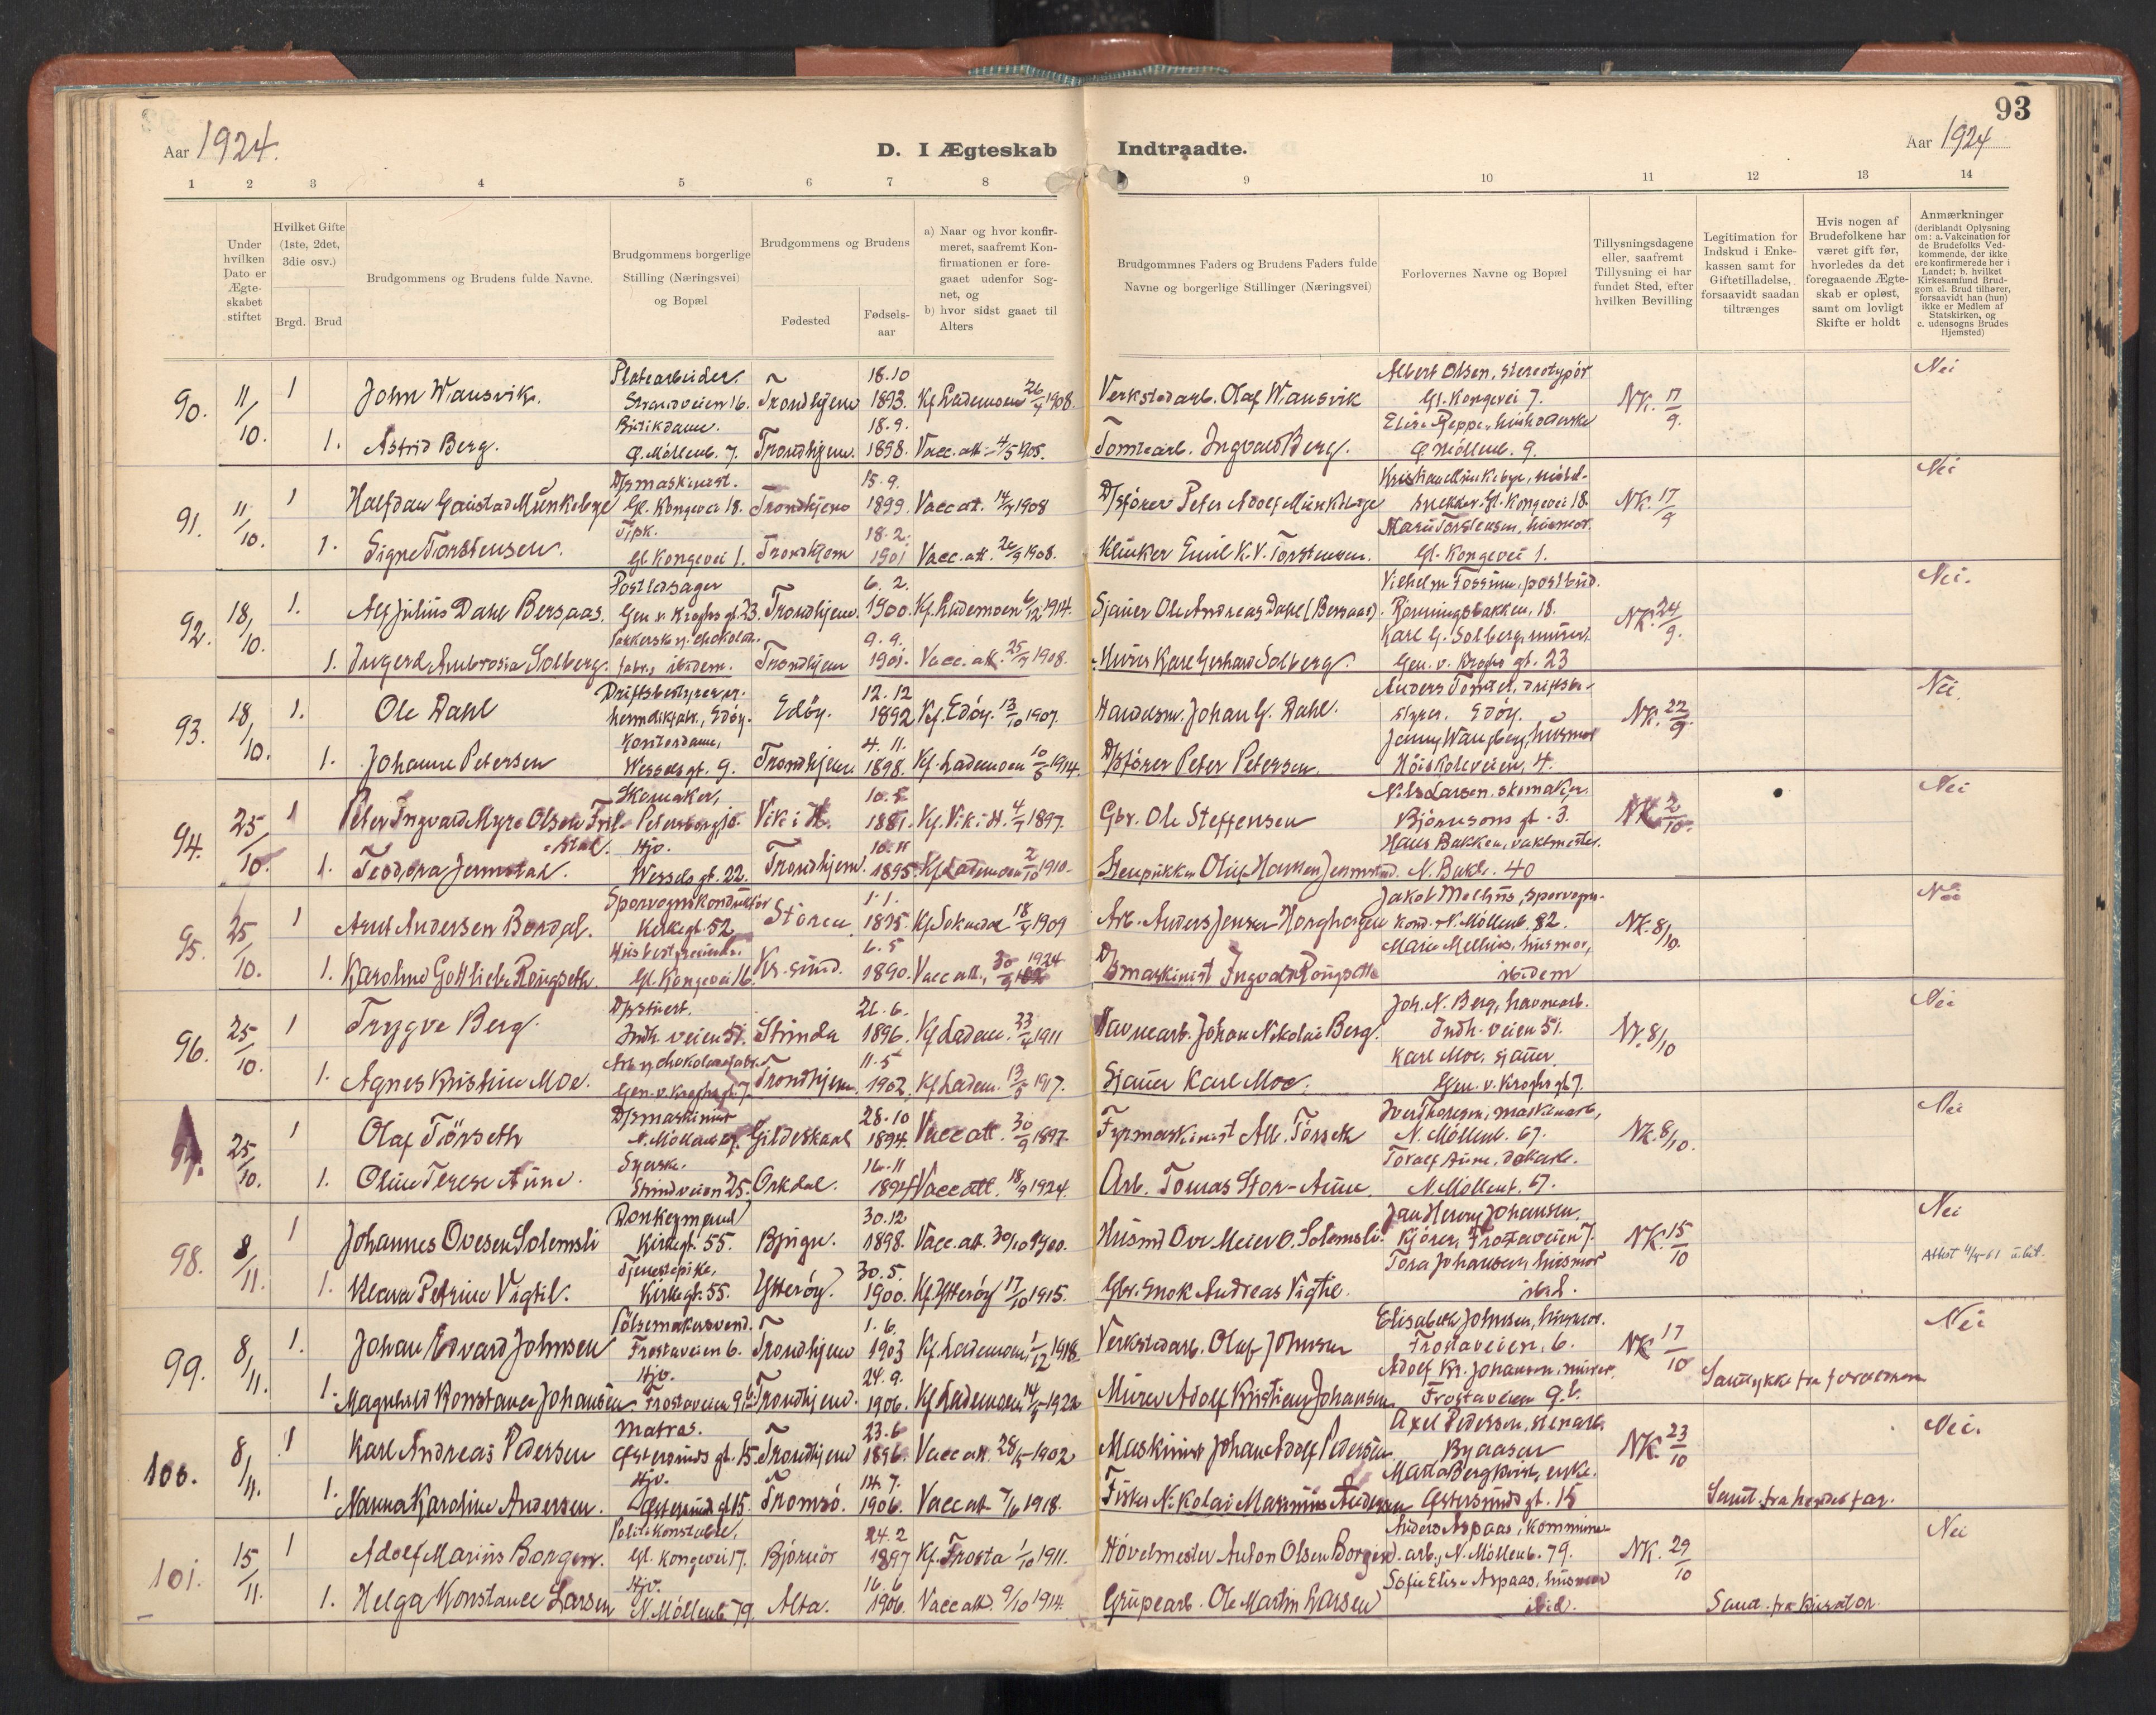 93
Aar 1924.
D. I Ægteskab Indtraadte.
Aar 1924
1 2 3 4 5 6 7 8 9 10 11 12 13 14
Under hvilken Dato er Ægteskabet stiftet
Hvilket Gifte (1ste, 2det, 3die osv.)
Brgd. Brud
Brudgommens og Brudens fulde Navne.
Brudgommens borgerlige Stilling (Næringsvei) og Bopæl
Brudgommens og Brudens
Fødested
Fødselsaar
a) Naar og hvor konfirmeret, saafremt Konfirmationen er foregaaet udenfor Sognet, og
b) hvor sidst gaaet til Alters
Brudgommnes Faders og Brudens Faders fulde Navne og borgerlige Stillinger (Næringsvei)
Forlovernes Navne og Bopæl
Tillysningsdagene eller, saafremt Tillysning ei har fundet Sted, efter hvilken Bevilling
Legitimation for Indskud i Enkekassen samt for Giftetilladelse, forsaavidt saadan tiltrænges
Hvis nogen af Brudefolkene har været gift før, hvorledes da det foregaaende Ægteskab er opløst, samt om lovligt Skifte er holdt
Anmærkninger (deriblandt Oplysning om: a. Vakcination for de Brudefolks Vedkommende, der ikke ere konfirmerede her i Landet; b. hvilket Kirkesamfund Brudgom el. Brud tilhører, forsaavidt han (hun) ikke er Medlem af Statskirken, og c. udensogns Brudes Hjemsted)
90. 11/10. 1 John Wansvik. Platearbeider. Strandveien 16. Trondhjem 18.10 1893. Kf. Lademoen 26/4 1908. Verkstedarb. Olaf Wansvik Albert Olsen, stereotypør Gl. Kongevei 7. NK. 17/9. Nei
1. Astrid Berg. Butikdame. Ø. Møllenb. 7. Trondhjem. 18.9. 1898. Vacc. att. 4/5 1905. Tomtearb. Ingvald Berg. Ø Møllenb. 9.
91. 11/10. 1 Halfdan Gaustad Munkebye D/pmaskinist. Gl. Kongevei 18. Trondhjem 15.9. 1899. Vacc att. 14/9 1908 D/pfører Peter Adolf Munkebye Kristian Munkebye, Gl. Kongevei 18. NK. 17/9 Nei
1. Signe Torstensen. Gl. Kongevei 1. Trondhjem 18.2. 1901 Vacc. att. 26/9 1908. Klinker Emil K.V. Torstensen. Marie Torstensen, husmor. Gl. Kongevei 1.
92. 18/10. 1. Alf Julius Dahl Bersaas. Postledsager Gen. v. Kroghs gt. 23. Trondhjem. 6.2. 1900. Kf. Lademoen 6/12 1914. Sjauer Ole Andreas Dahl (Bersaas). Vilhelm Fossum, postbud. Rønningsbakken, 18. NK. 24/9. Nei.
1. Ingerd Ambrosia Solberg. Pakkerske v. chokolade fabr., ibidem. Trondhjem 9.9. 1901. Vacc. att. 25/9 1908. Murer Karl Gerhard Solberg. Karl G. Solberg, murer. Gen. v. Kroghs gt. 23
93. 18/10. 1. Ole Dahl Driftsbestyrer v. hermetikfabr., Edøy. Edøy. 12.12 1892 Kf. Edøy. 13/10 1907. Handelsm. Johan G. Dahl. Anders Tomtet, driftsbestyrer. Edøy. NK. 22/9. Nei.
1. Johanne Petersen Kontordame, Wesselsgt. 9. Trondhjem 4.11. 1898. Kf. Lademoen 10/5 1914. D/pfører Peter Petersen. Jenny Wangberg, husmor Høiskoleveien, 4.
94. 25/10. 1 Peter Ingvard Myre Olsen Skomaker, Vik i H. 1881. Kf. Vik i H. 4/7 1897. Gbr. Ole Steffensen Nils Larsen, skomaker. Bjørnsons gt. 3. NK 2/10. Nei
1. Teodora Jermstad. Hjv. Wessels gt. 22. Trondhjem. 10.11 1895. Kf. Lademoen 2/10 1910. Stenpukker Oluf Hansen Jermstad. Hans Bakken, vaktmester. N. Bakl. 40
95. 25/10. 1 Arnt Andersen Bordal. Sporvognskonduktør Kirkegt. 52 Støren 1.1. 1895. Kf. Soknedal 18/4 1909 Arb. Anders Jensen Horghagen Jakob Melhus, sporvognkond. N. Møllenb. 82. NK. 8/10. Nei
1. Karoline Gottliebe Røngseth. Husbestyrerinde. Gl. Kongevei 16. Kr.sund. 6.5 1890. Vacc att., 30/9 1924 D/pmaskinist Ingvald Røngseth Marie Melhus, husmor, ibidem
96. 25/10. 1 Trygve Berg. D/pstuert. Indh. veien 51. Strinda 21.6. 1896. Kf Ladem. 23/4 1911 Havnearb. Johan Nikolai Berg. Joh. N. Berg, havnearb. Indh. veien 51. NK. 8/10 Nei
1. Agnes Kristine Moe. Arb v. chokoladefabr. Gen. v. Kroghs gt 7. Trondhjem. 11.5 1902. Kf Ladem. 13/5 1917. Sjauer Karl Moe. Karl Moe, sjauer Gen. v. Kroghs gt 7.
97. 25/10. 1 Olaf Tørseth D/pmaskinist Gildeskaal 28.10 1894. Vacc att. 30/9 1897. Fyrmaskinist Alb. Tørseth Iver Thoresen, maskinarb, N. Møllenb. 67. NK. 8/10. Nei
1. Oline Terese Aune. Syerske. Strindveien 25. Orkdal. 16.11 1894 Vacc att. 18/9 1924. Arb. Tomas Stor-Aune. N. Møllenb. 67.
98. 8/11. 1 Johannes Ovesen Solemsli Donkeymand Kirkegt. 55. Bjugn. 30.12 1898. Vacc. att. 30/10 1900. Husmd Ove Meier O. Solemsli. Jan Henry Johansen. Kjører, Frostaveien 7. NK. 15/10 Nei
1. Klara Petrine Vigtil. Tjenestepike, Kirkegt. 55. Ytterøy. 30.5. 1900. Kf Ytterøy 17/10 1915. Gbr. Enok Andreas Vigtil. Tora Johansen, husmor ibid.
99. 8/11. 1. Johan Edvard Johnsen Pølsemakersvend. Frostaveien 6. Trondhjem 1.6. 1903 Kf. Lademoen 1/12 1918 Verkstedarb. Oluf Johnsen Elisabeth Johnsen, husmor. Frostaveien, 6. NK 17/10 Nei
1. Magnhild Konstance Johansen Hjv. Frostaveien 9b Trondhjem. 24.9. 1906. Kf Lademoen 14/5 1922 Murer Adolf Kristian Johansen Adolf Kr. Johansen, murer. Frostaveien 9.b. Samtykke fra forældrene
100. 8/11. 1 Karl Andreas Pedersen Matros. Østersunds gt. 15. Trondhjem 23.6 1896. Vacc att. 28/5 1902 Maskinist Johan Adolf Pedersen Axel Pedersen, stenarb. Byaasen NK. 23/10 Nei.
1. Nanna Karoline Andersen. Hjv. Østersund gt 15. Tromsø. 14.7. 1906. Vacc att 7/6 1918. Fisker Nikolai Marinius Andersen Marta Bergkvist, enke. Østersunds gt. 15 Samt. fra hendes far.
101. 15/11. 1 Adolf Marius Borgen. Politikonstabel, Gl. Kongevei 17. Bjørnør 24.2 1897 Kf. Frosta 1/10 1911. Høvelmester Anton Olsen Borgen Anders Aspaas, kommunearb., N. Møllenb. 79. NK. 29/10 Nei
1. Helga Konstance Larsen Hjv. N. Møllenb 79. Alta. 16.6 1906. Vacc att. 9/10 1914. Grubearb. Ole Martin Larsen Sofie Elise Aspaas, husmor ibid. Samt. fra kurator.